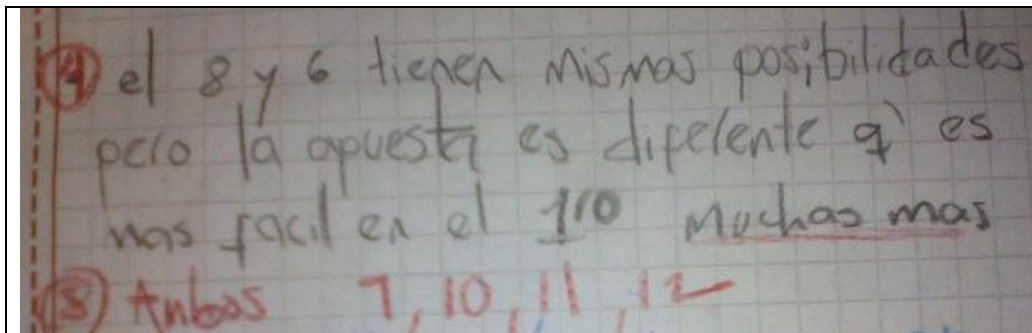 ④ el 8 y 6 tienen mismas posibilidades
pero la apuesta es diferente q' es
mas facil en el 1ro muchas mas
⑤ Ambos 7, 10, 11, 12